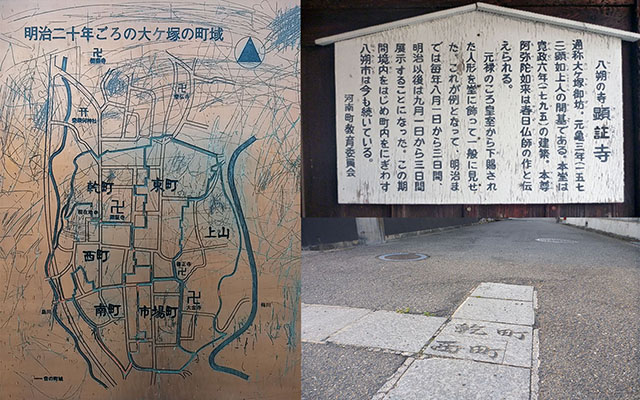 明治二十年ごろの大ケ塚の町域
卍
卍
乾町
東町
卍
卍
上山
西町
卍
南町
市場町
卍
大念寺
梅川
昔の町域
八朔の寺 顕証寺
通称大ケ塚御坊、元亀三年(一五七
二)顕如上人の開基である。本堂は
寛政六年(一七九五)の建築、本尊
阿弥陀如来は春日仏師の作と伝
えられる。
元禄のころ皇室から下賜され
た人形を堂に飾って一般に見せ
た。これが例となって、明治ま
では毎年八月一日から三日間、
明治以後は九月一日から三日間
展示することになった。この期
間境内をはじめ町内をにぎわす
八朔市は今も続いている。
河南町教育委員会
乾町
西町